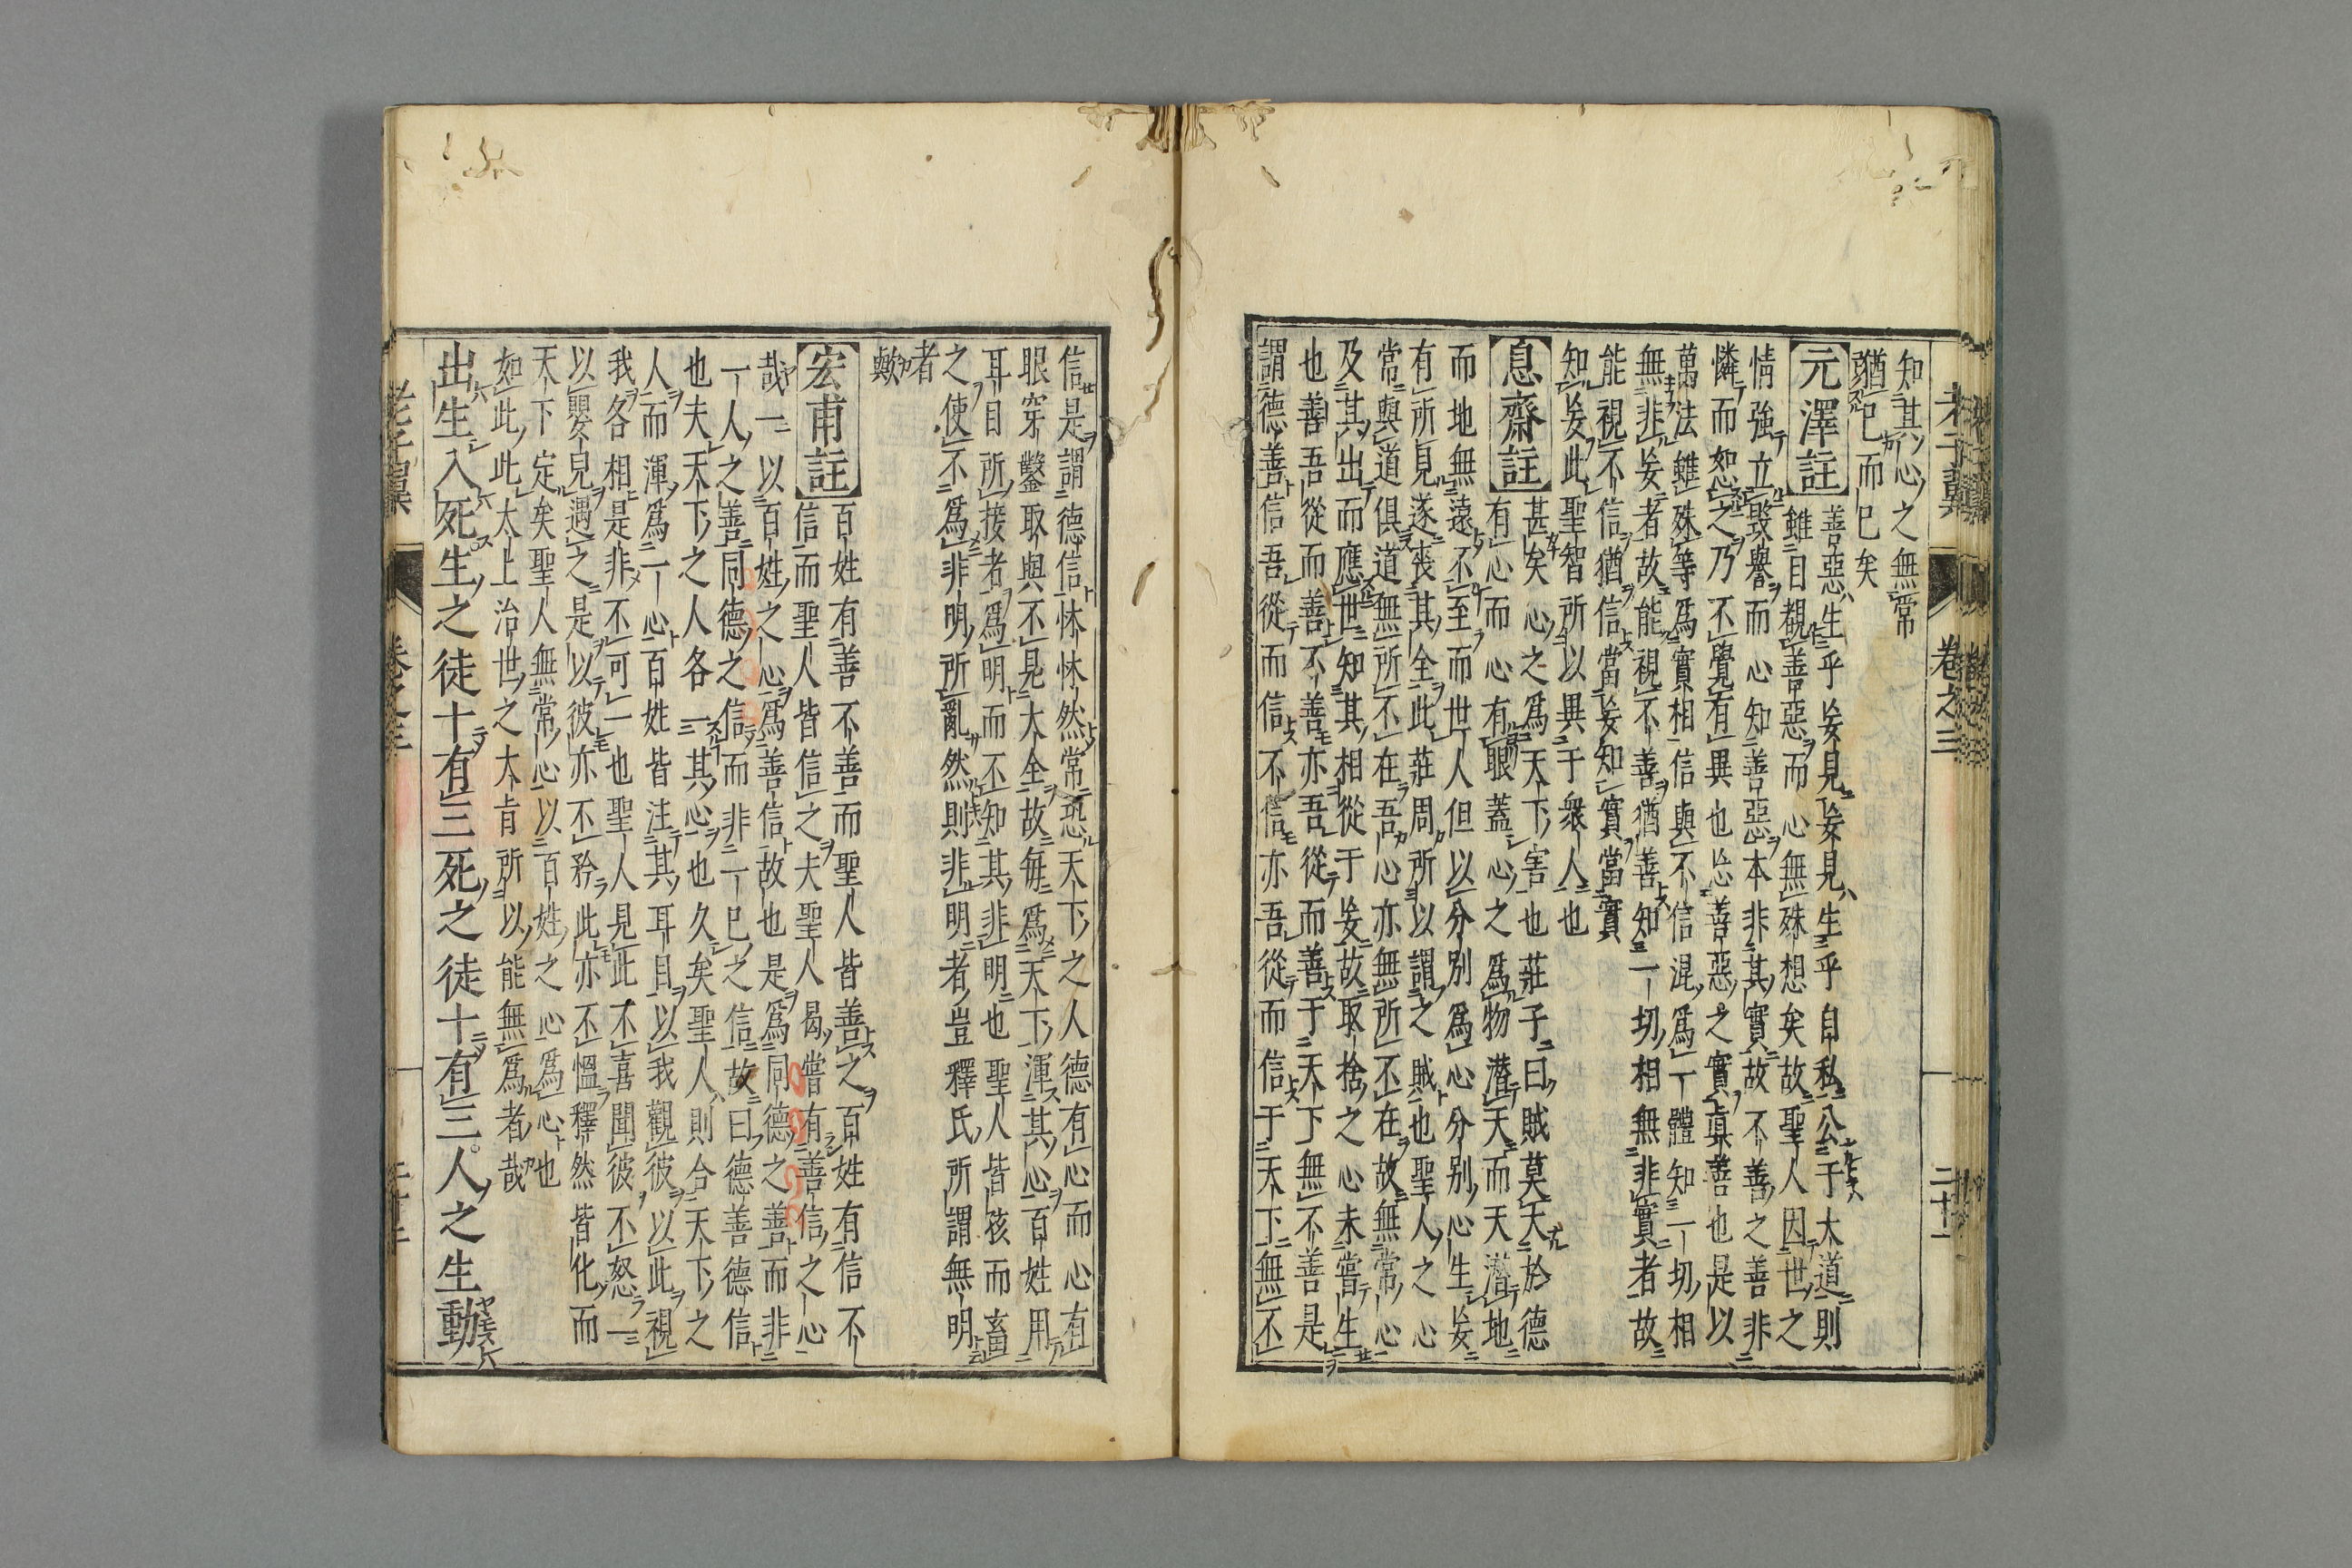 老子翼 卷之三 二十一
知其心之無常
猶已而已矣
元澤註
善惡生乎妄見妄見生乎自私公于大道則
雖目覩善惡而心無殊想矣故聖人因世之
情強立毀譽而心知善惡本非其實故不善之善非
憐而恕之乃不覺有異也忘善惡之實眞善也是以
萬法雖殊等爲實相信與不信混爲一體知一切相
無非妄者故能視不善猶善知一切相無非實者故
能視不信猶信當妄知實當實
知妄此聖智所以異于衆人也
息齋註
甚矣心之爲天下害也莊子曰賊莫大於德
有心而心有眼蓋心之爲物潛天而天潛地
而地無遠不至而世人但以分別爲心分别心生妄
有所見遂喪其全此莊周所以謂之賊也聖人之心
常與道俱道無所不在吾心亦無所不在故無常心
及其出而應世知其相從于妄故取捨之心未嘗生
也善吾從而善不善亦吾從而善于天下無不善是
謂德善信吾從而信不信亦吾從而信于天下無不
信是謂德信怵怵然常恐天下之人德有心而心有
眼穿鑿取與不見大全故每爲天下渾其心百姓用
耳目所接者爲明而不知其非明也聖人皆孩而畜
之使不爲非明所亂然則非明者豈釋氏所謂無明
者
歟
宏甫註
百姓有善不善而聖人皆善之百姓有信不
信而聖人皆信之夫聖人曷嘗有善信之心
哉一以百姓之心爲善信故也是爲同德之善而非
一人之善同德之信而非一己之信故曰德善德信
也夫天下之人各一其心也久矣聖人則合天下之
人而渾爲一心百姓皆注其耳目以我觀彼以此視
我各相是非不可一也聖人見此不喜聞彼不怒一
以嬰兒遇之是以彼亦不矜此亦不慍釋然皆化而
天下定矣聖人無常心以百姓之心爲心也
如此此太上治世之大肯所以能無爲者哉
出生入死生之徒十有三死之徒十有三人之生動
老子翼 卷之三